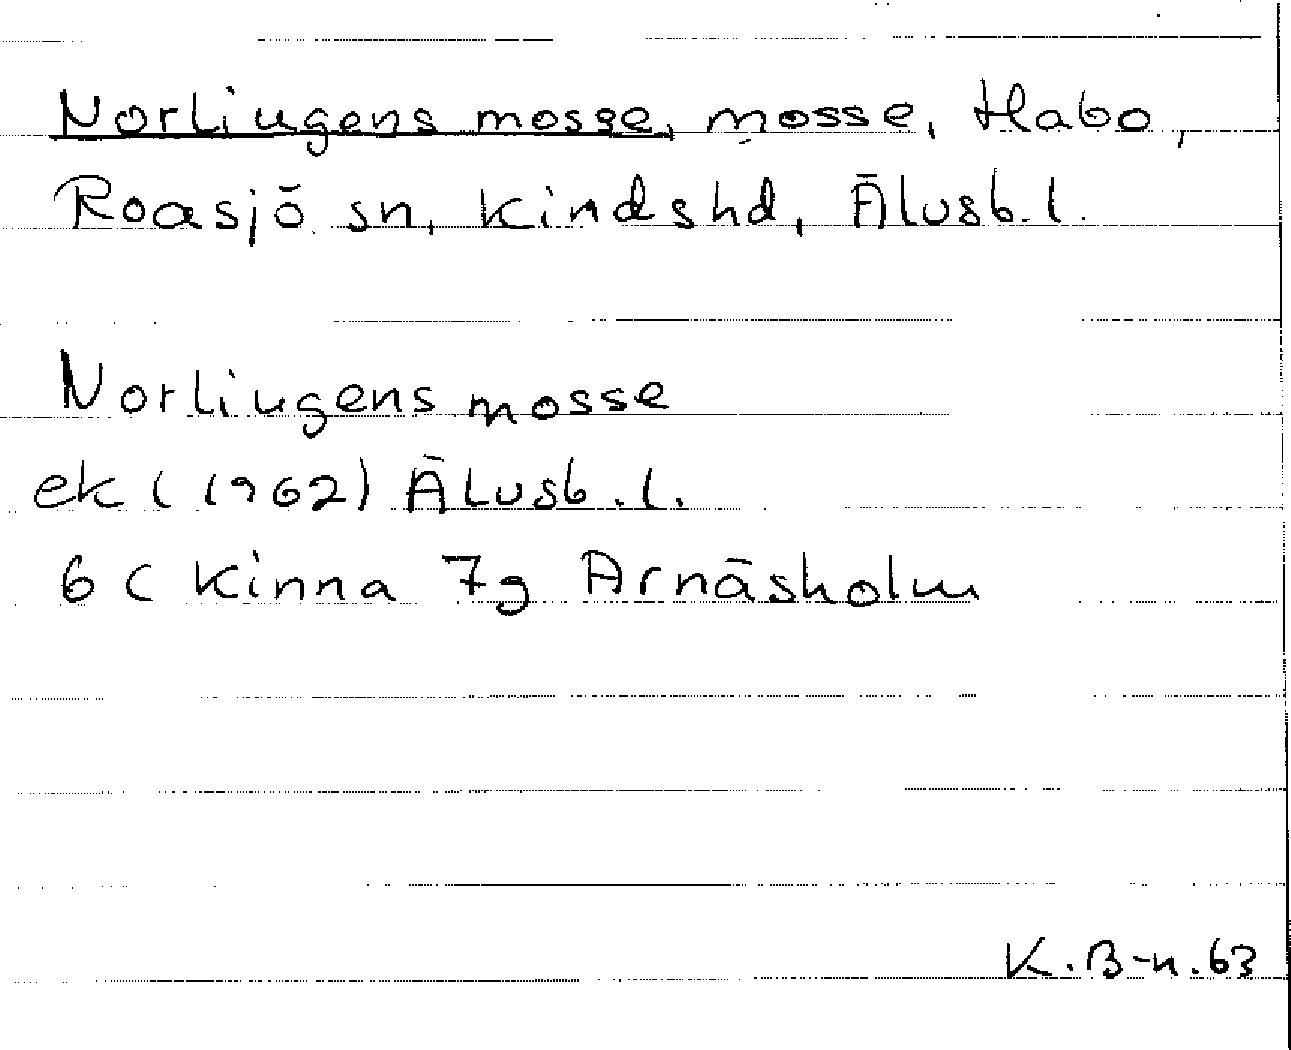 Norliugens mosse, mosse, Habo,
Roasjö sn, Kinds hd, Älvsb. l.
Norliugens mosse
ek (1962) Älvsb. l.
6 C Kinna 7g Arnäsholm
K. B-n. 63